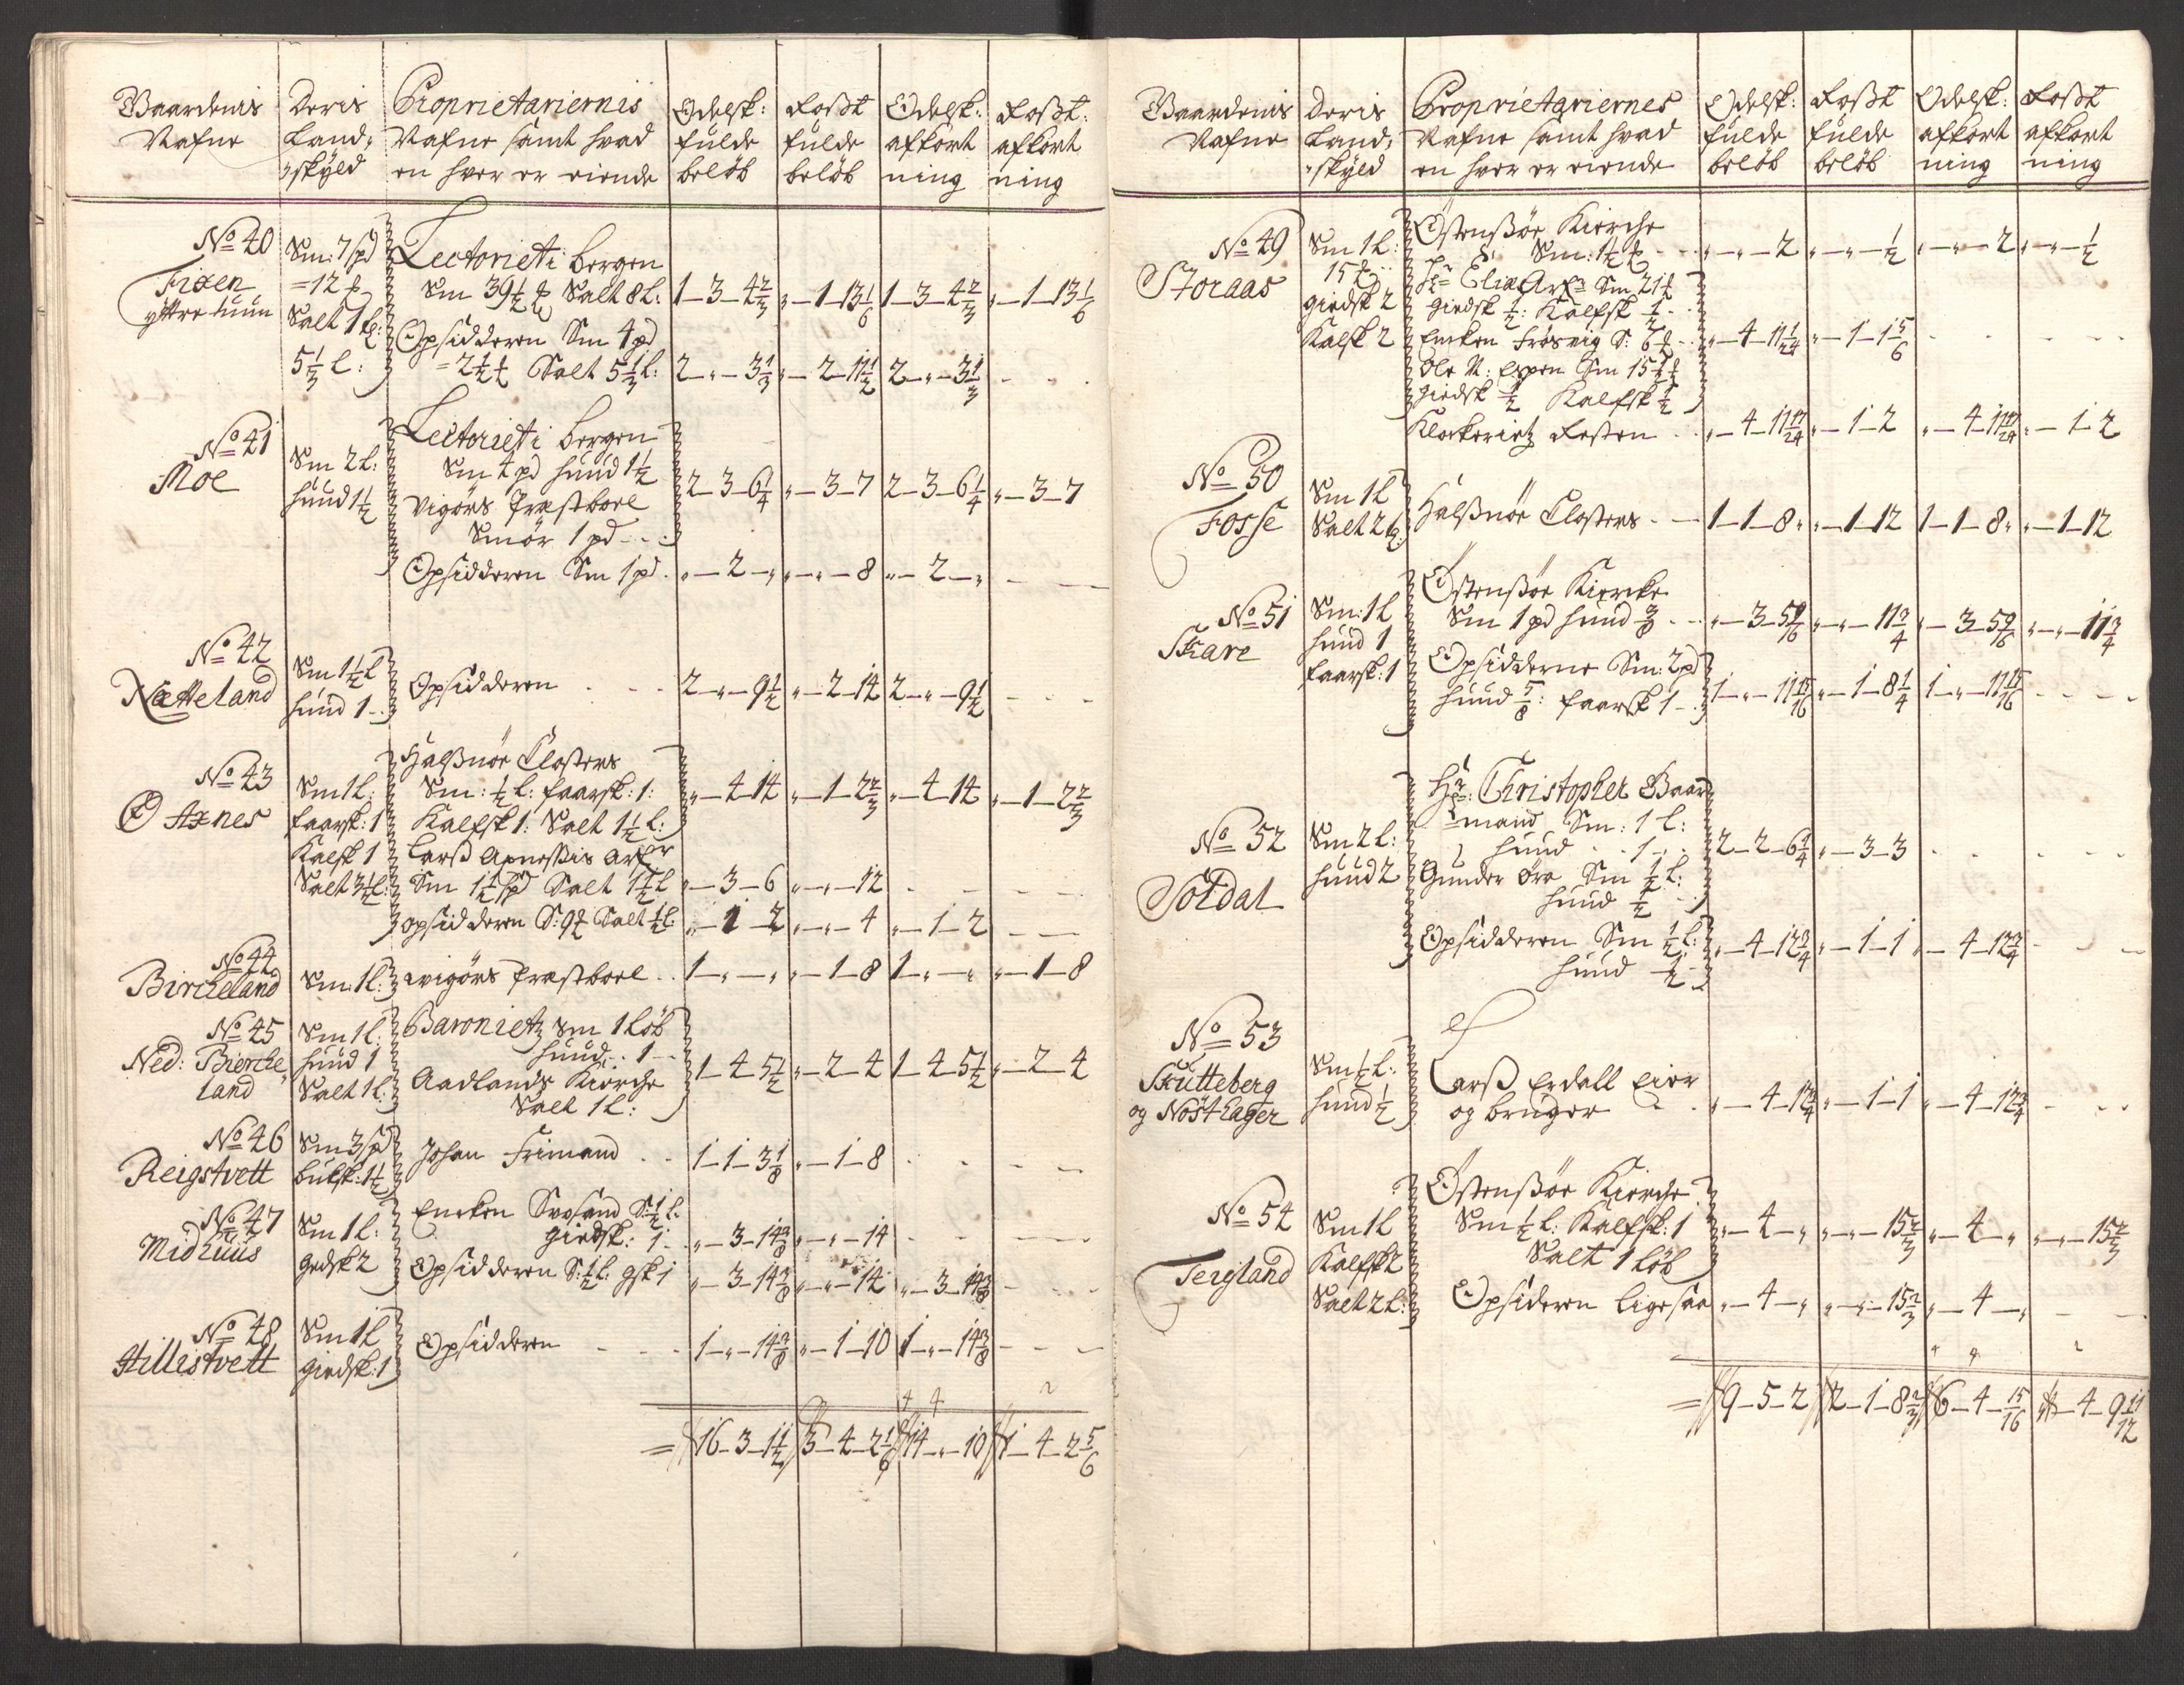 Gaardenis Nafne
Deris Land-skyld
Proprietariernis Nafne samt hvad en hver er eiende
Odelsk: fulde beløb
Leßt fulde beløb
Odelsk: afkortning
Leßt: afkortning
No 40
Fixen yttre tuun
Sm: 7 pd = 12 Salt 1 5 1/3 l:
Lectoriet i bergen
Sm 39 1/2 Salt 8 l: 1-3-4 2/3 "-1-13 1/6 1-3-4 2/3 "-1-13 1/6
Opsidderen Sm 4 pd
= 2 1/2 Salt 5 1/3 l: 2-"-3 1/3 "-2-11 1/2 2-"-3 1/3
No 41
Moe
Sm 2 l:
huud 1 1/2
Lectoriet i bergen
Sm 4 pd huud 1 1/2
vigørs Præstboel
Smör 1 pd 2-3-6 1/4 "-3-7 2-3-6 1/4 "-3-7
Opsidderen Sm 1 pd "-2-" "-"-8 "-2-"
No 42
Nætteland
Sm 1 1/2 l
huud 1
Opsidderen 2-"-9 1/2 "-2-14 2-"-9 1/2
No 43
Axnes
Sm 1 l:
faarsk: 1
Kalfsk 1
Salt 3 1/2 l:
Halßnöe Closters
Sm: 1/2 l: faarsk: 1:
Kalfsk 1: Salt 1 1/2 l: "-4-14 "-1-2 2/3 "-4-14 "-1-2 2/3
Larß Arnes
Sm 1 1/2 pd Salt 1 1/2 l "-3-6 "-"-12
opsidderen S: 9 Salt 1/2 l: "-1-2 "-"-4 "-1-2
No 44
Bircheland
Sm: 1 l:
wigørs Præstboel 1-"-" "-1-8 1-"-" "-1-8
No 45
Ned: Bierche land
Sm 1 l:
huud 1
Salt 1 l:
Baronietz Sm 1 Löb
huud 1
Aadlands Kirche
Salt 1 l: 1-4-5 1/2 "-2-4 1-4-5 1/2 "-2-4
No 46
Reigstvett
Sm 3 pd
buksk: 1 1/2
Johan Frimand 1-1-3 1/8 "-1-8
No 47
Midhuus
Sm 1 l:
gedsk 2
Encken S: 1/2 l:
giedsk: 1 "-3-14 3/8 "-"-14
Opsidderen S: 1/2 l: gsk 1 "-3-14 3/8 "-"-14 "-3-14 3/8
No 48
Hillistvett
Sm 1 l
giedsk: 1
Opsidderen 1-"-14 3/8 "-1-10 1-"-14 3/8
= 16-3-1 1/2 5-4-2 1/6 14-"-10 1-4-2 5/6
Gaardenis Nafne
Deris Land-skyld
Proprietariernes Nafne samt hvad en hver er eiende
Odelsk: fulde beløb
Leßt fulde beløb
Odelsk: afkortning
Leßt afkortning
No 49
Storaas
Sm 1 l:
15
giedsk 2
Kalfsk 2
Östensßöe Kirche
Sm: 1 1/2 "-"-2 "-"-1/2 "-"-2 "-"-1/2
Hr Eliæ Arf: Sm 21
giedsk 1/2: Kalfsk 1/2
Encken Frøsvig S: 6 "-4-11 1/24 "-1-1 5/6
Ole N: Espen Sm 15
giedsk 1/2 Kalfsk 1/2
Klockerietz Resten "-4-11 17/24 "-1-2 "-4-11 17/24 "-1-2
No 50
Fosse
Sm 1 l
Salt 2
Halßnöe Closters 1-1-8 "-1-12 1-1-8 "-1-12
No 51
Skare
Sm: 1 l
huud 1
faarsk: 1
Östensßöe Kiercke
Sm 1 pd huud 3/8 "-3-5 "-"-11 3/4 "-3-5 "-"-11 3/4
Opsidderne Sm: 2 pd
huud 5/8: faarsk 1 1-"-11 15/16 "-1-8 1/4 1-"-11 15/16
No 52
Soldal
Sm 2 l:
huud 2
Hr: Christopher Gaarmand Sm: 1 l:
huud 1
Gunder Øre Sm 1/2 l:
huud 1/2 2-2-6 1/4 "-3-3
Opsidderen Sm 1/2 l:
huud 1/2 "-4-12 3/4 "-1-1 "-4-12 3/4
No 53
Skutteberg
og Nøstlager
Sm 1/2 l:
huud 1/2
Larß Erdall Eier
og bruger "-4-12 3/4 "-1-1 "-4-12 3/4
No 54
Tergland
Sm 1 l
Kalfsk 2
Salt 2 l:
Östensßöe Kierche
Sm 1/2 l: Kalfsk: 1
Salt 1 Löb "-4-" "-"-15 2/3 "-4-" "-"-15 2/3
Opsideren ligesaa "-4-" "-"-15 2/3 "-4-"
= 9-5-2 2-1-8 2/3 6-4-15/16 "-4-9 11/12